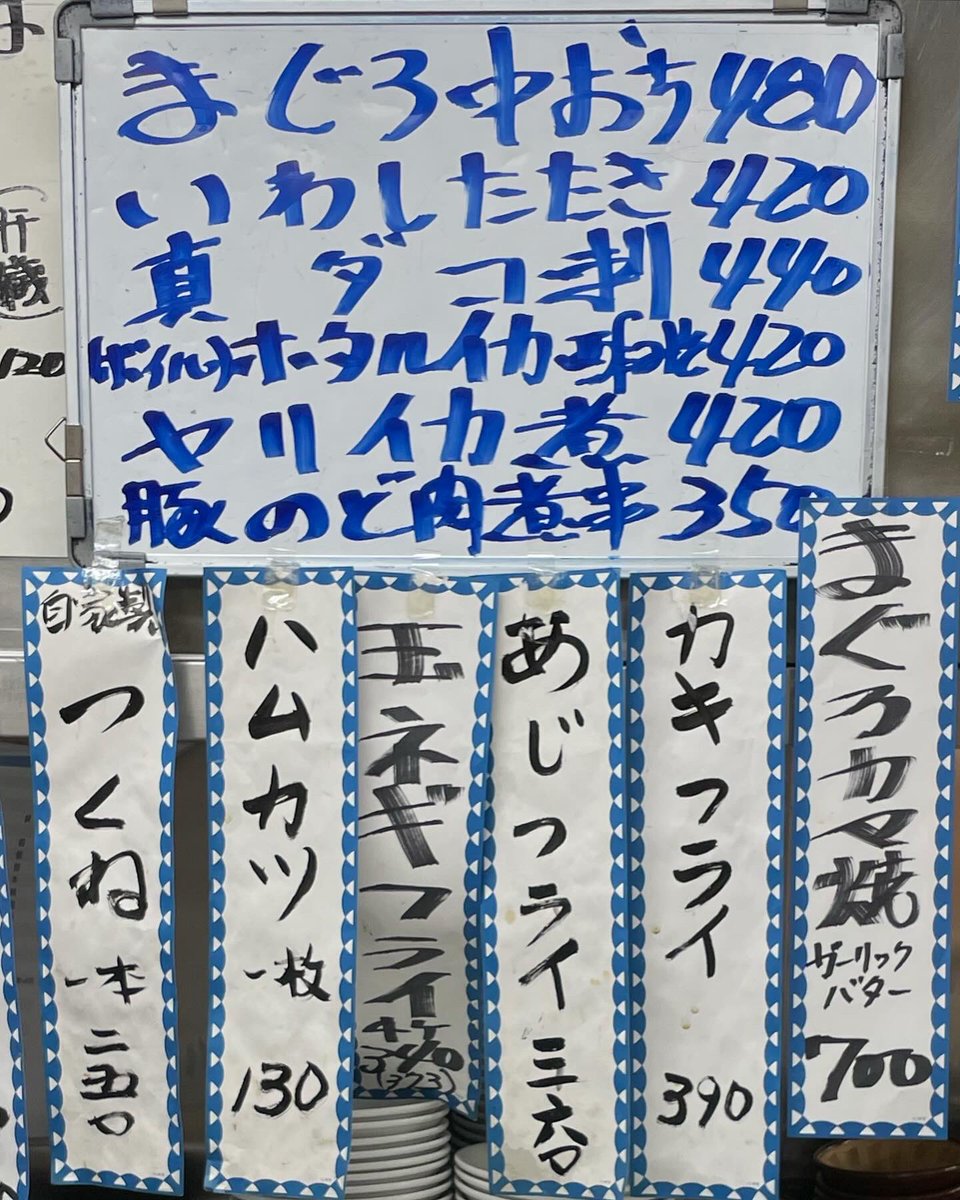 まぐろ中おち480
いわしたたき420
真ダコ刺440
(ボイル)ホタルイカ酢420
ヤリイカ煮420
豚のど肉煮串350
まぐろカマ焼
ガーリック
バター
700
カキフライ
390
あじフライ三六〇
玉ネギフライ
ハムカツ一枚
130
自家製
つくね一本二五〇
120